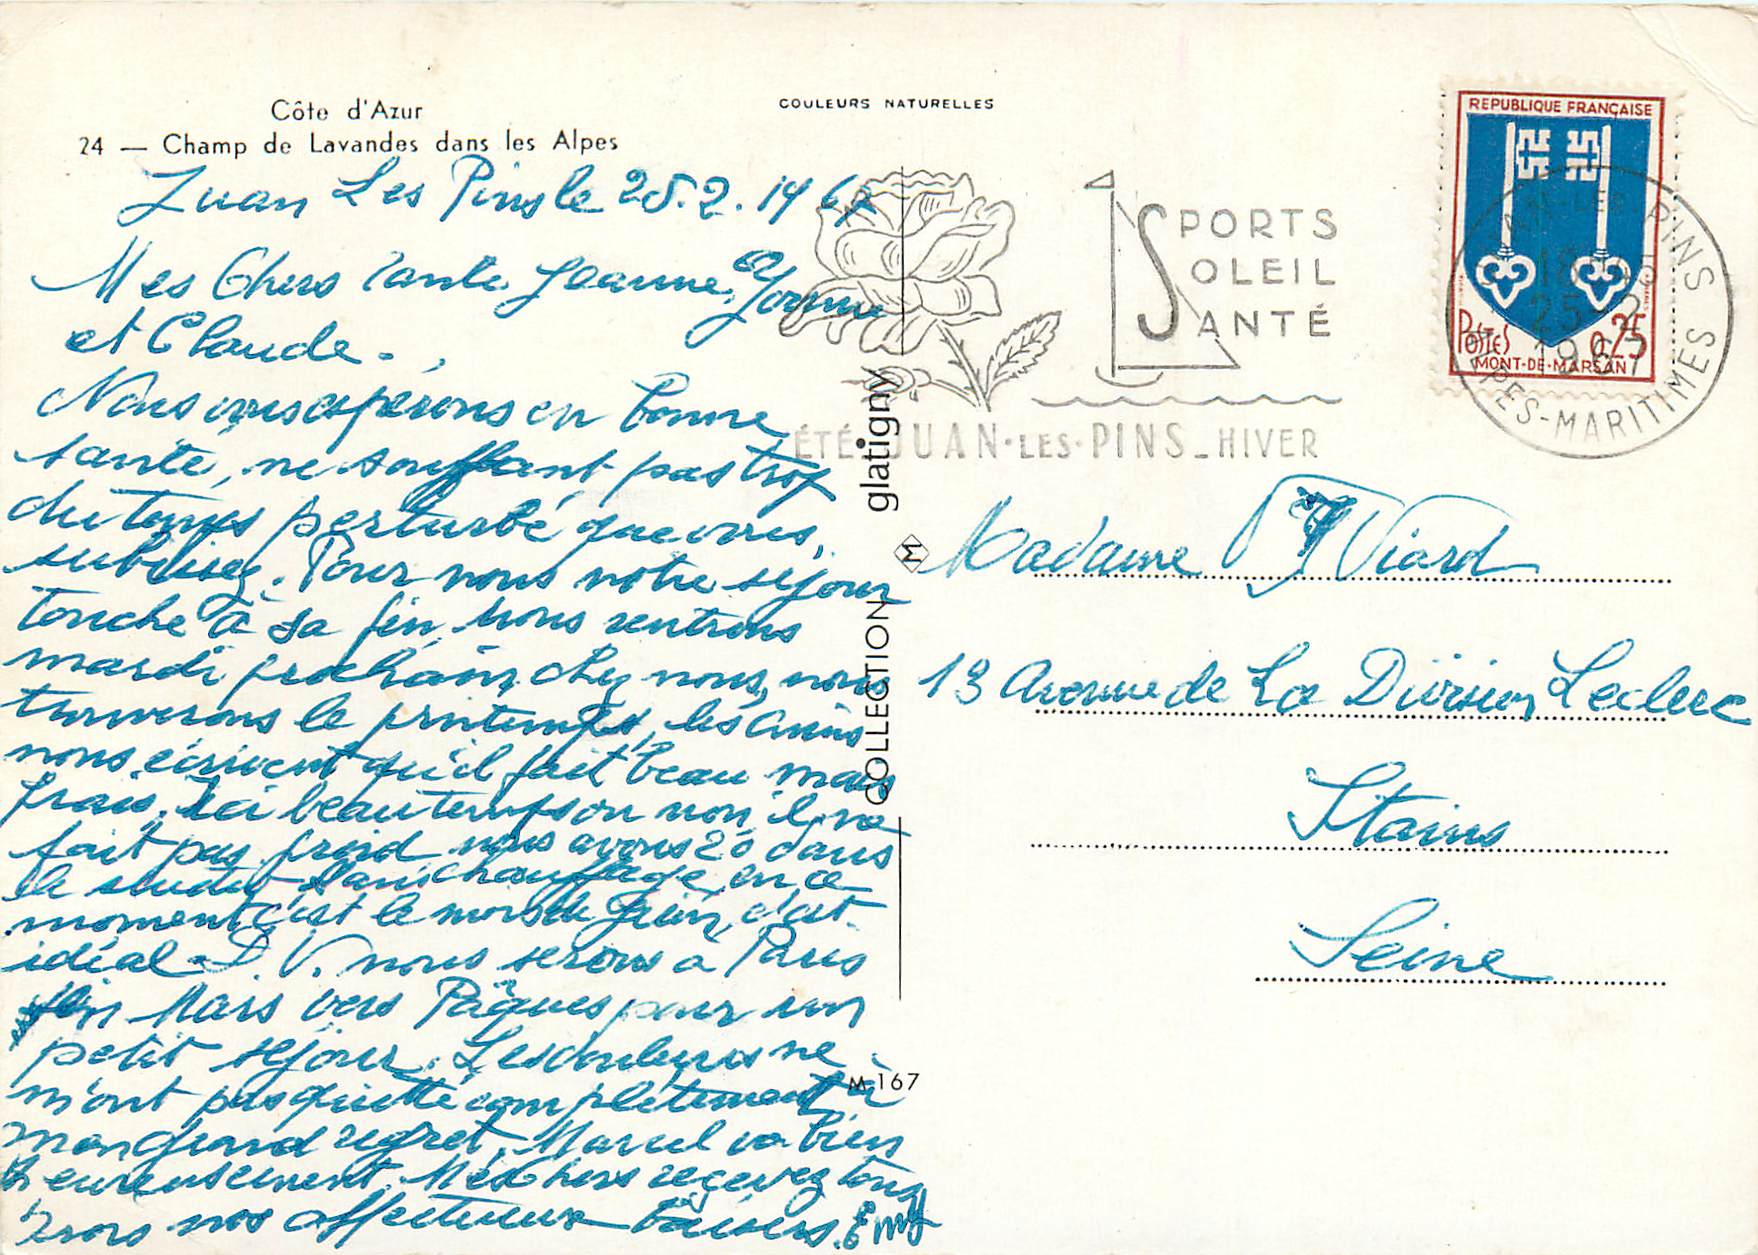 Côte d'Azur
24 — Champ de Lavandes dans les Alpes
COULEURS NATURELLES
Juan Les Pins le 25.2.1967
Mes Chers Tante Jeanne, Yvonne
et Claude.
Nous vous espérons en bonne
santé, ne souffrant pas trop
du temps perturbé que vous
subissez. Pour nous notre séjour
touche à sa fin, nous rentrons
mardi prochain chez nous, nous
trouverons le printemps, les amis
nous écrivent qu'il fait beau mais
frais. Ici beau temps ou non il ne
fait pas froid, nous avons 20 dans
le studio sans chauffage, en ce
moment c'est le mois de Juin, c'est
idéal - D.V. nous serons à Paris
fin Mars vers Pâques pour un
petit séjour. Les douleurs ne
m'ont pas quitté complètement à
mon grand regret, Marcel va bien
heureusement. Mes chers recevez tous
trois nos affectueux baisers.
SPORTS
SOLEIL
SANTÉ
ÉTÉ JUAN·LES·PINS_HIVER
REPUBLIQUE FRANÇAISE
POSTES
0,25
MONT-DE-MARSAN
JUAN-LES-PINS
18
25-2
1967
ALPES-MARITIMES
COLLECTION M glatigny
M 167
Madame Y Viard
13 Avenue de La Division Leclerc
Stains
Seine